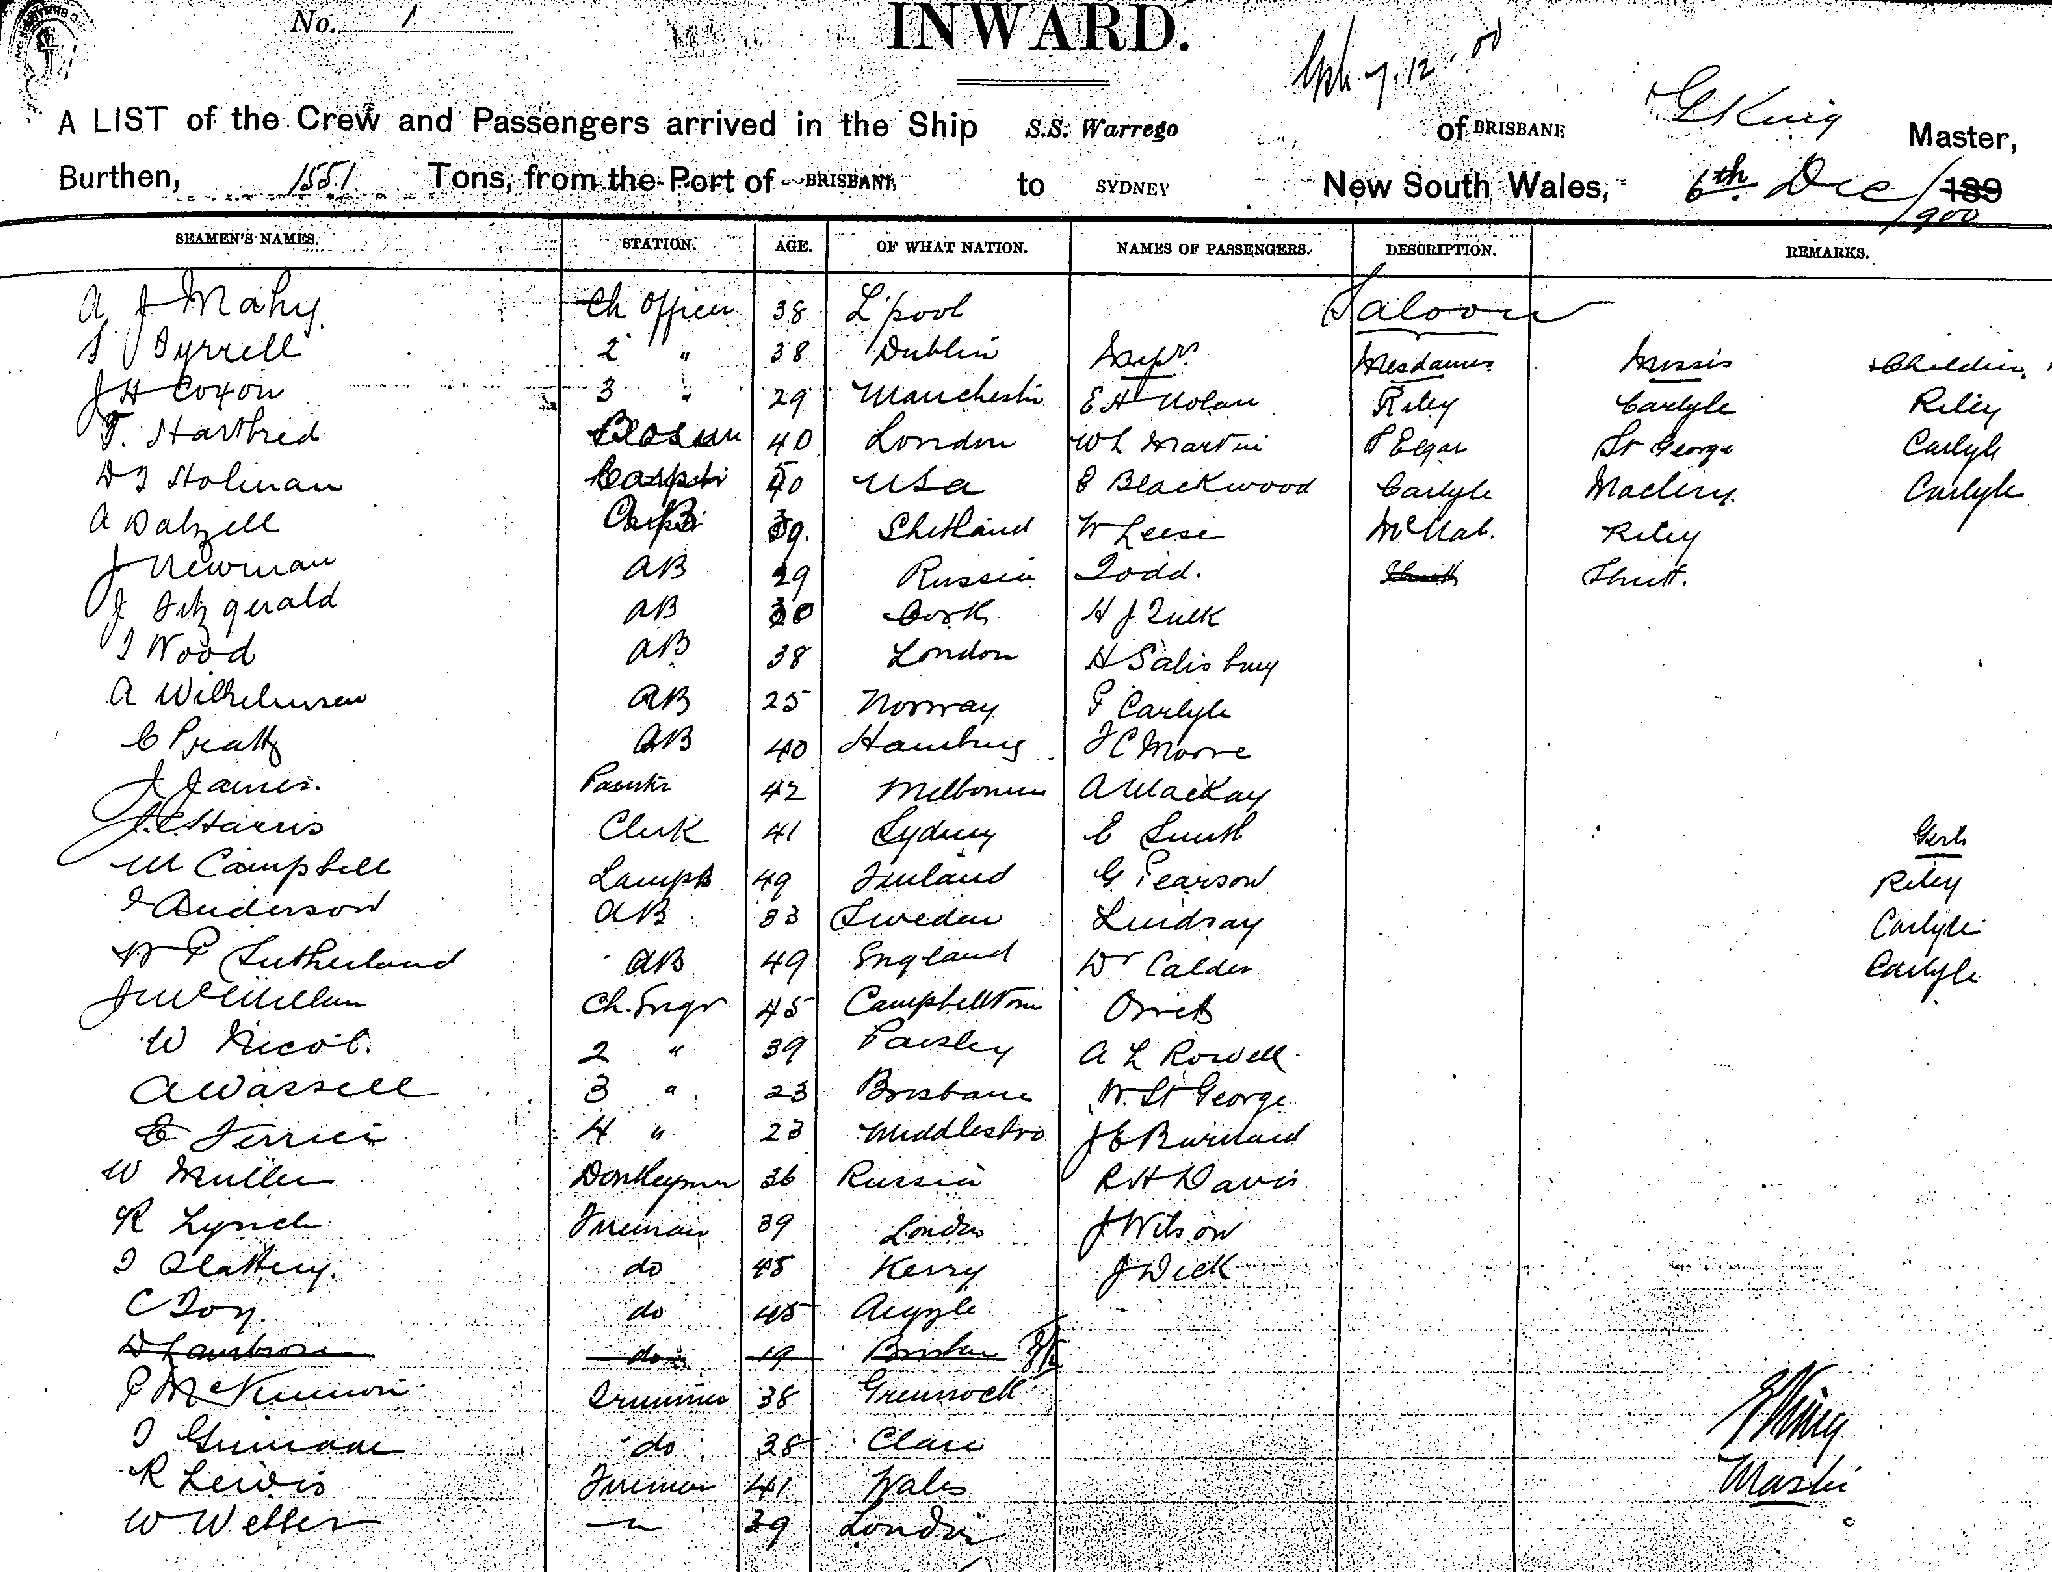 No. 1
INWARD.
7.12.00
A LIST of the Crew and Passengers arrived in the Ship S.S. Warrego of BRISBANE G King Master,
Burthen, 1551 Tons, from the Port of BRISBANE to SYDNEY New South Wales, 6th Dec 189 /900
SEAMEN'S NAMES. STATION. AGE. OF WHAT NATION. NAMES OF PASSENGERS. DESCRIPTION. REMARKS.
A J Mahy Ch Officer 38 L'pool Saloon
Tyrrell 2 " 38 Dublin Messrs Mesdames Misses Children
J H Coxon 3 " 29 Manchester E H Nolan Riley Carlyle Riley
T. Hartbred Bosun 40 London W L Martin Elgar St George Carlyle
Holman Carpntr 50 USA Blackwood Carlyle Carlyle
A Dalzell AB 39 Shetland W Leese McNab. Riley
J Newman AB 29 Russia Todd.
J Fitzgerald AB 30 Cork H J
T Wood AB 38 London H Salisbury
A Wilhelmsen AB 25 Norway Carlyle
C Pratt AB 40 Hamburg Moore
J James. Painter 42 Melbourne A Mackay
J.C. Harris Clerk 41 Sydney E Smith Girls
M Campbell Lamps 49 Finland G Pearson Riley
Anderson AB 33 Sweden Lindsay Carlyle
W P Sutherland AB 49 England Dr Calder Carlyle
J McMillan Ch. Engr 45 Campbelltown
W Nicol. 2 " 39 Paisley A L Rowell
A Wassell 3 " 23 Brisbane W. St George
E Ferrier 4 " 23 Middlesbro J E Burnard
W Muller Donkeyman 36 Russia R H Davis
R Lynch Fireman 39 London J Wilson
T Slattery. do 45 Kerry J Dick
C Toy. do 45 Argyle
do 19 Brisbane
P McKinnon Trimmer 38 Greenock G King
do 38 Clare
R Lewis Fireman 41 Wales Master
W Weller " 39 London